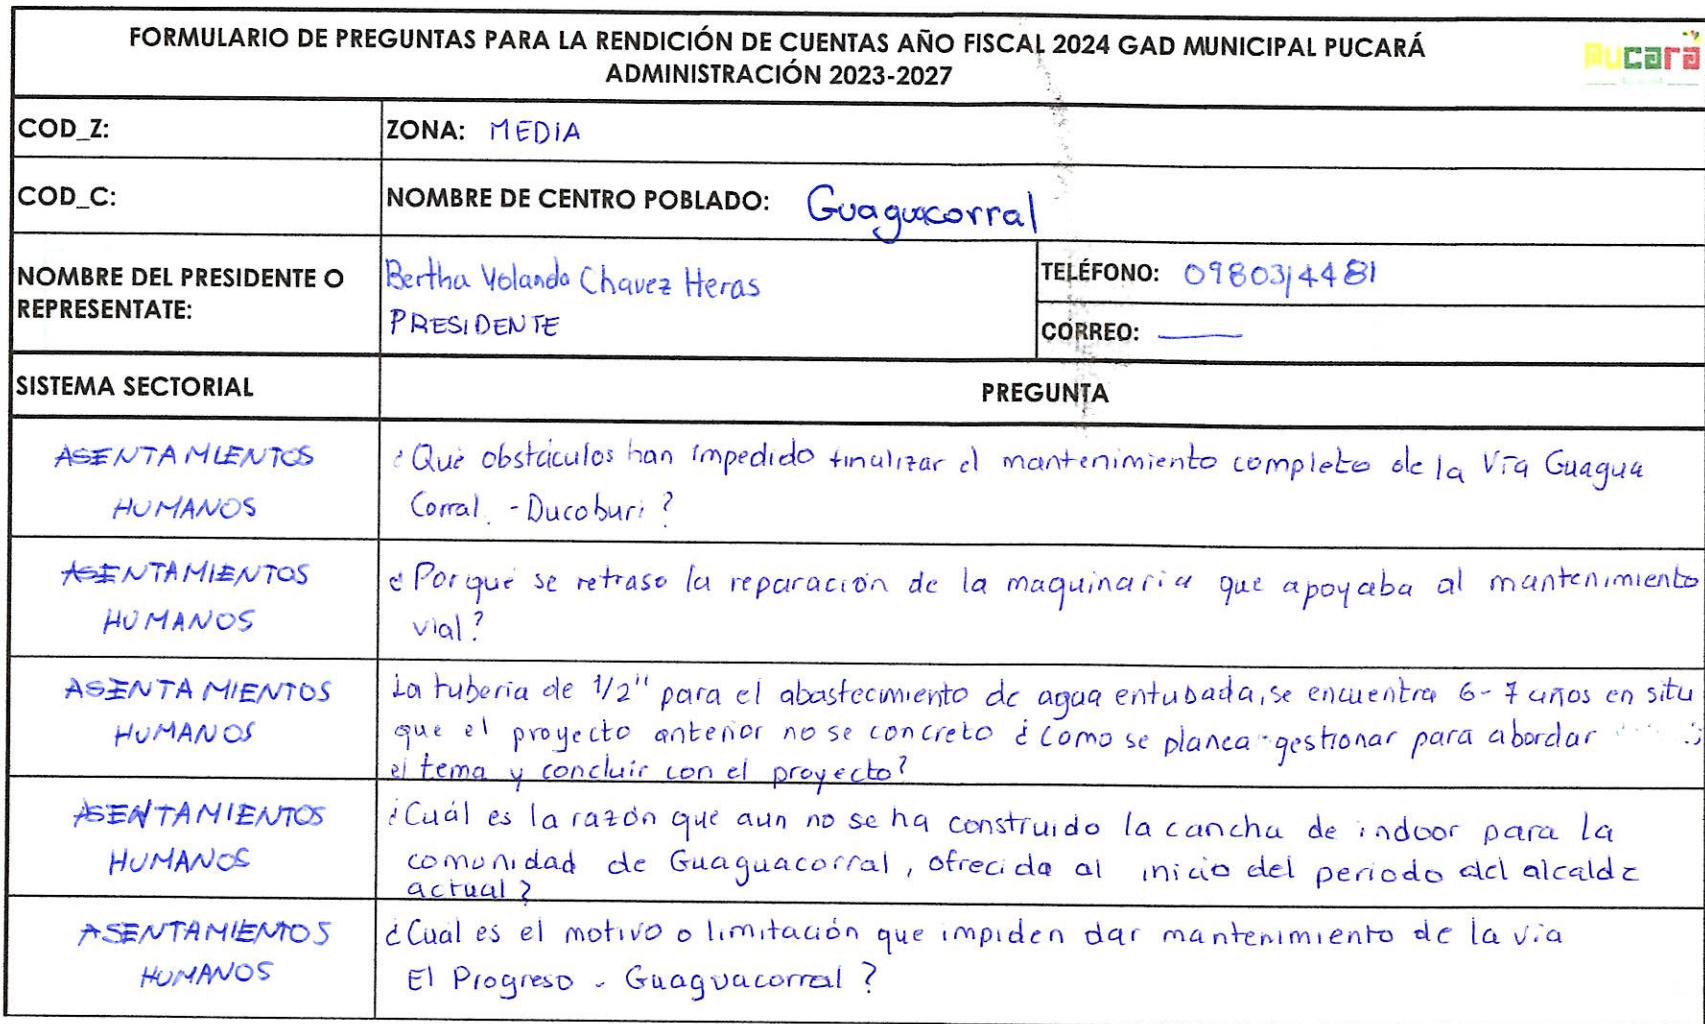 FORMULARIO DE PREGUNTAS PARA LA RENDICIÓN DE CUENTAS AÑO FISCAL 2024 GAD MUNICIPAL PUCARÁ
ADMINISTRACIÓN 2023-2027
Pucará
COD_Z:
ZONA: MEDIA
COD_C:
NOMBRE DE CENTRO POBLADO: Guaguacorral
NOMBRE DEL PRESIDENTE O
REPRESENTATE:
Bertha Yolanda Chavez Heras
PRESIDENTE
TELÉFONO: 0980314481
CORREO: ——
SISTEMA SECTORIAL
PREGUNTA
ASENTAMIENTOS
HUMANOS
¿Qué obstáculos han impedido finalizar el mantenimiento completo de la Vía Guagua
Corral. - Ducoburi?
ASENTAMIENTOS
HUMANOS
¿Porqué se retraso la reparación de la maquinaria que apoyaba al mantenimiento
vial?
ASENTAMIENTOS
HUMANOS
La tuberia de 1/2" para el abastecimiento de agua entubada, se encuentra 6-7 años en situ
que el proyecto anterior no se concreto ¿como se planea gestionar para abordar
el tema y concluir con el proyecto?
ASENTAMIENTOS
HUMANOS
¿Cuál es la razón que aun no se ha construido la cancha de indoor para la
comunidad de Guaguacorral, ofrecida al inicio del periodo del alcalde
actual?
ASENTAMIENTOS
HUMANOS
¿Cual es el motivo o limitación que impiden dar mantenimiento de la via
El Progreso - Guaguacorral?